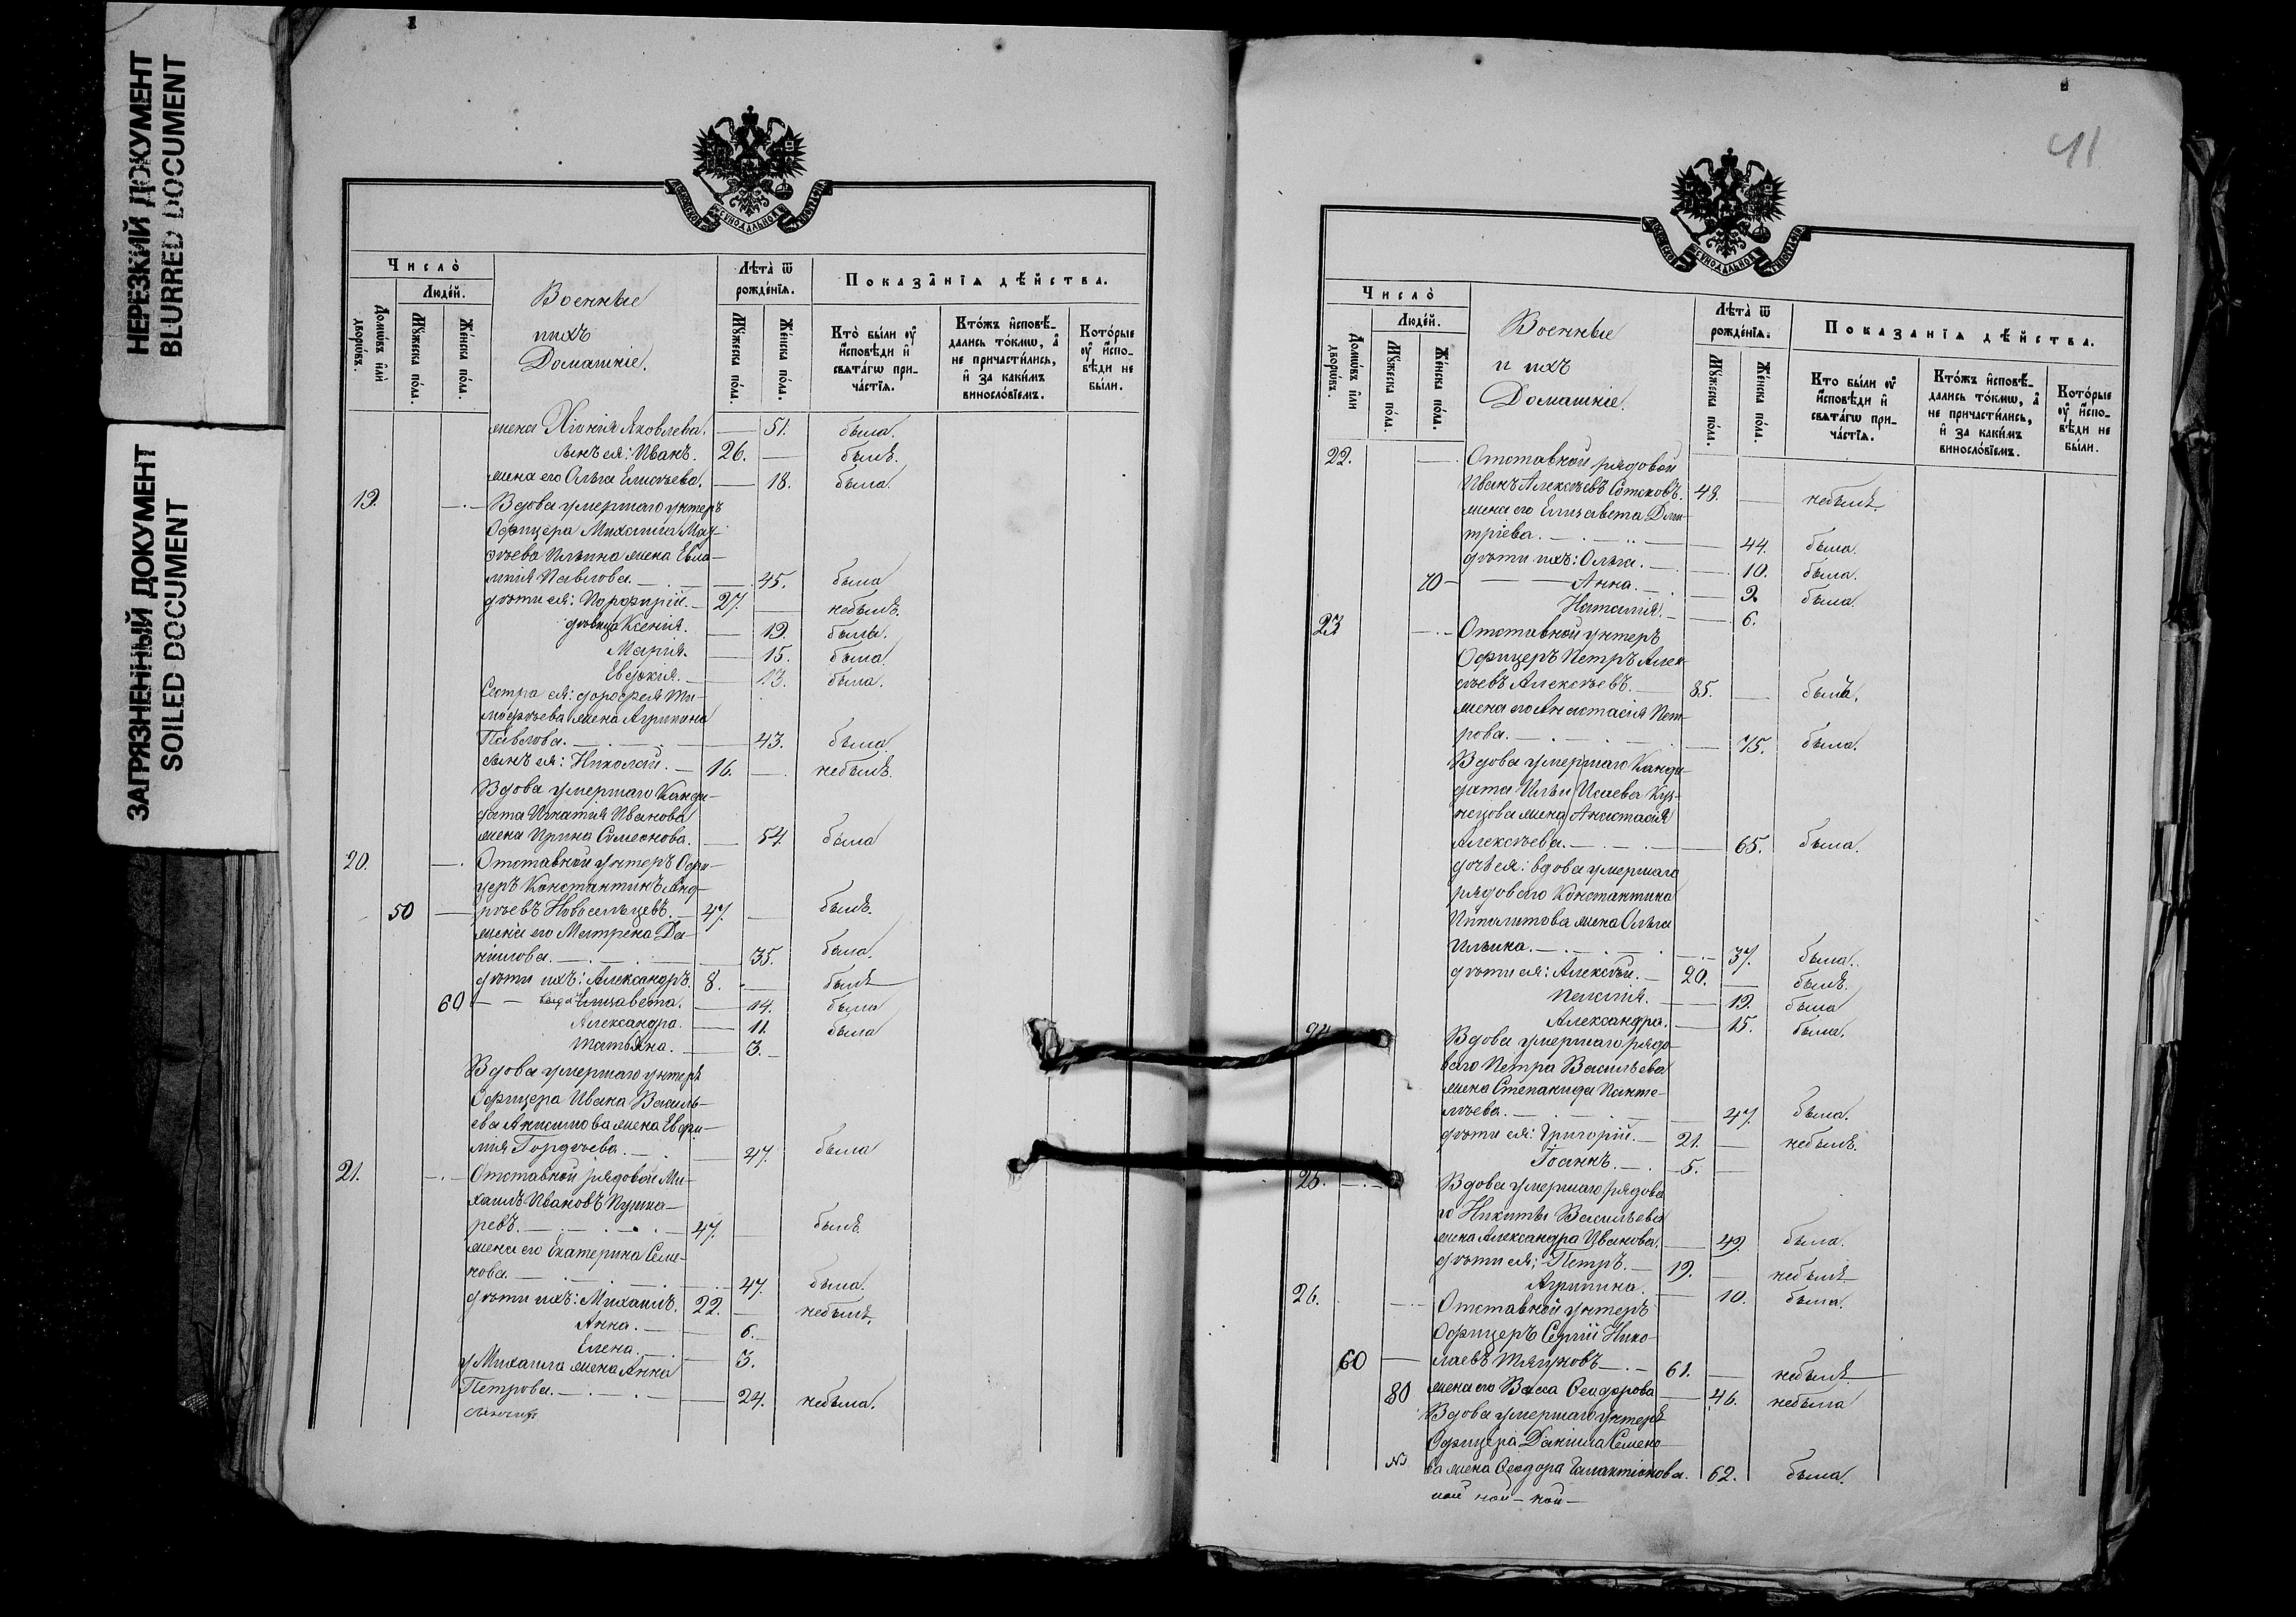 НЕРЕЗКИЙ ДОКУМЕНТ
BLURRED DOCUMENT
ЗАГРЯЗНЕННЫЙ ДОКУМЕНТ
SOILED DOCUMENT
Число̀
Людѐй.
Домѡ́въ и҆лѝ дворѡ́въ.
Мꙋ́жеска по́ла.
Же́нска по́ла.
Военные
ихъ
Домашніе.
Лѣта̀ ѿ рожде́нїѧ.
Мꙋ́жеска по́ла.
Же́нска по́ла.
Показа̑нїѧ дѣ́йства.
Кто̀ бы́ли ᲂу҆
и҆сповѣди и҆
свѧта́гѡ при-
ча́стїѧ.
Кто́жъ и҆сповѣ́-
дались то́кмѡ, а҆
не причасти́лись,
и҆ за каки́мъ
винослові́емъ.
Кото́рые
ᲂу҆ и҆спо-
вѣди не
бы́ли.
жена Хіонія Яковлева. — 51. была.
сынъ ея: Иванъ. 26. — былъ.
жена его Ольга Елисѣева. — 18. была.
19. Вдова умершаго унтеръ
Офицера Михаила Мат-
ѳѣева Ильина жена Евла-
мпія Павлова. — 45. была
дѣти ея: Порфирій. — 27. — небылъ.
дѣвица Ксенія. — 19. была.
Марія. — 15. была.
Евдокія. — 13. была.
Сестра ея: Ти-
моѳѣева жена Агрипина
Павлова. — 43. была
сынъ ея: Николай. — 16. — небылъ.
Вдова умершаго Канди-
дата Игнатія Иванова
жена Ирина Симеонова. — 54. была
20. Отставной унтеръ Офи-
церъ Константинъ Анд-
50 — рѣевъ Новосельцевъ. — 47. — былъ.
жена его Матрена Да-
нилова. — 35. была.
дѣти ихъ: Александръ. 8. — былъ
60 — Елизавета. — 14. была
Александра. — 11. была
Татьяна. — 3. —
Вдова умершаго унтеръ
Офицера Ивана Василь-
ева Анисимова жена Евфи-
мія Гордѣева. — 47. была
21. Отставной рядовой Ми-
хаилъ Ивановъ Пушка-
ревъ. — 47. былъ
жена его Екатерина Семе-
нова. — 47. была.
дѣти ихъ: Михаилъ. 22. — небылъ.
Анна. — 6. —
Елена. — 3.
у Михаила жена Анна
Петрова. — 24. небыла.
41
Число̀
Людѐй.
Домѡ́въ и҆ли дворѡ́въ.
Мꙋ́жеска по́ла.
Же́нска по́ла.
Военные
и ихъ
Домашніе.
Лѣта̀ ѿ рожде́нїѧ.
Мꙋ́жеска по́ла.
Же́нска по́ла.
Показа̑нїѧ дѣ́йства.
Кто бы́ли ᲂу҆
и҆сповѣди и҆
свѧта́гѡ при-
ча́стїѧ.
Кто́жъ и҆сповѣ́-
дались то́кмѡ, а҆
не причасти́лись,
и҆ за каки́мъ
винослові́емъ.
Кото́рые
ᲂу҆ и҆спо-
вѣди не
бы́ли.
22. — Отставной рядовой
Иванъ Алексѣевъ Сотсковъ. 48. — небылъ.
жена его Елисавета Дми-
тріева. — 44. была.
дѣти ихъ: Ольга. — 10. была.
70 — Анна. — 9. была.
Наталія. — 6.
23 — Отставной унтеръ
Офицеръ Петръ Алек-
сѣевъ Алексѣевъ. — 85. — былъ.
жена его Анастасія Пет-
рова. — 75. была.
Вдова умершаго Канди-
дата Ильи Исаева Куз-
нецова жена Анастасія
Алексѣева. — 65. была.
дочь ея: вдова умершаго
рядоваго Константина
Ипполитова жена Ольга
Ильина. — 37. была.
дѣти ея: Алексѣй. — 20. — былъ.
Пелагія. — 19. была
Александра. — 15. была.
24 Вдова умершаго рядо-
ваго Петра Васильева
жена Степанида Панте-
лѣева. — 47. была.
дѣти ея: Григорій. — 21. — небылъ.
Іоаннъ. — 5. —
25. — Вдова умершаго рядова
го Никиты Васильева
жена Александра Иванова. — 49. была.
дѣти ея: Петръ. — 19. — небылъ
Агрипина. — 10. была.
26. — Отставной унтеръ
Офицеръ Сергій Нико-
60 — лаевъ Тягуновъ — 61. — небылъ
80 жена его Васа Ѳеодорова — 46. небыла
Вдова умершаго унтеръ
Офицера Даніила Семено-
ва жена Ѳеодора Галактіонова. 62. была.